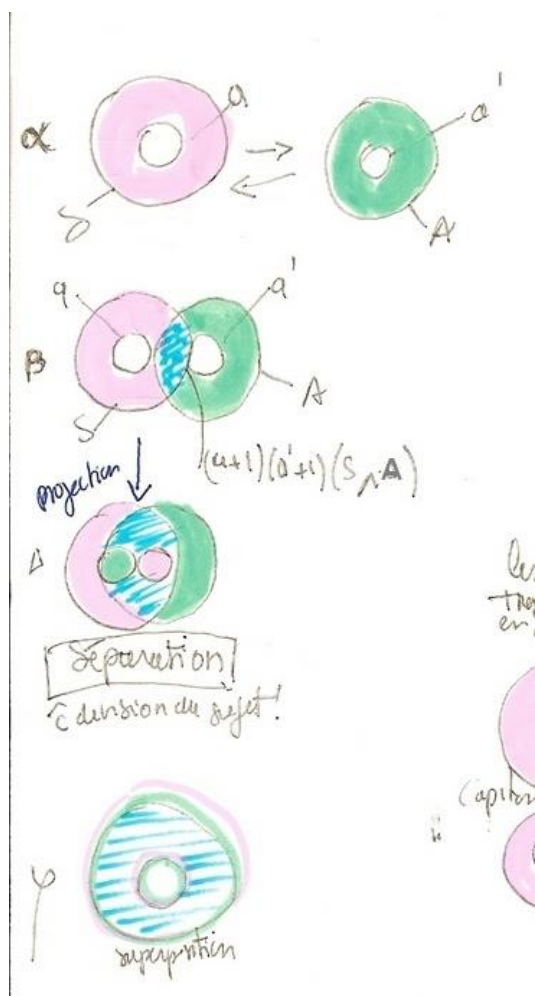 α
a
S
a'
A
β
a
a'
S
A
(a+1)(a'+1)(S∧A)
projection
Δ
Séparation
c̄ division du sujet!
φ
superposition